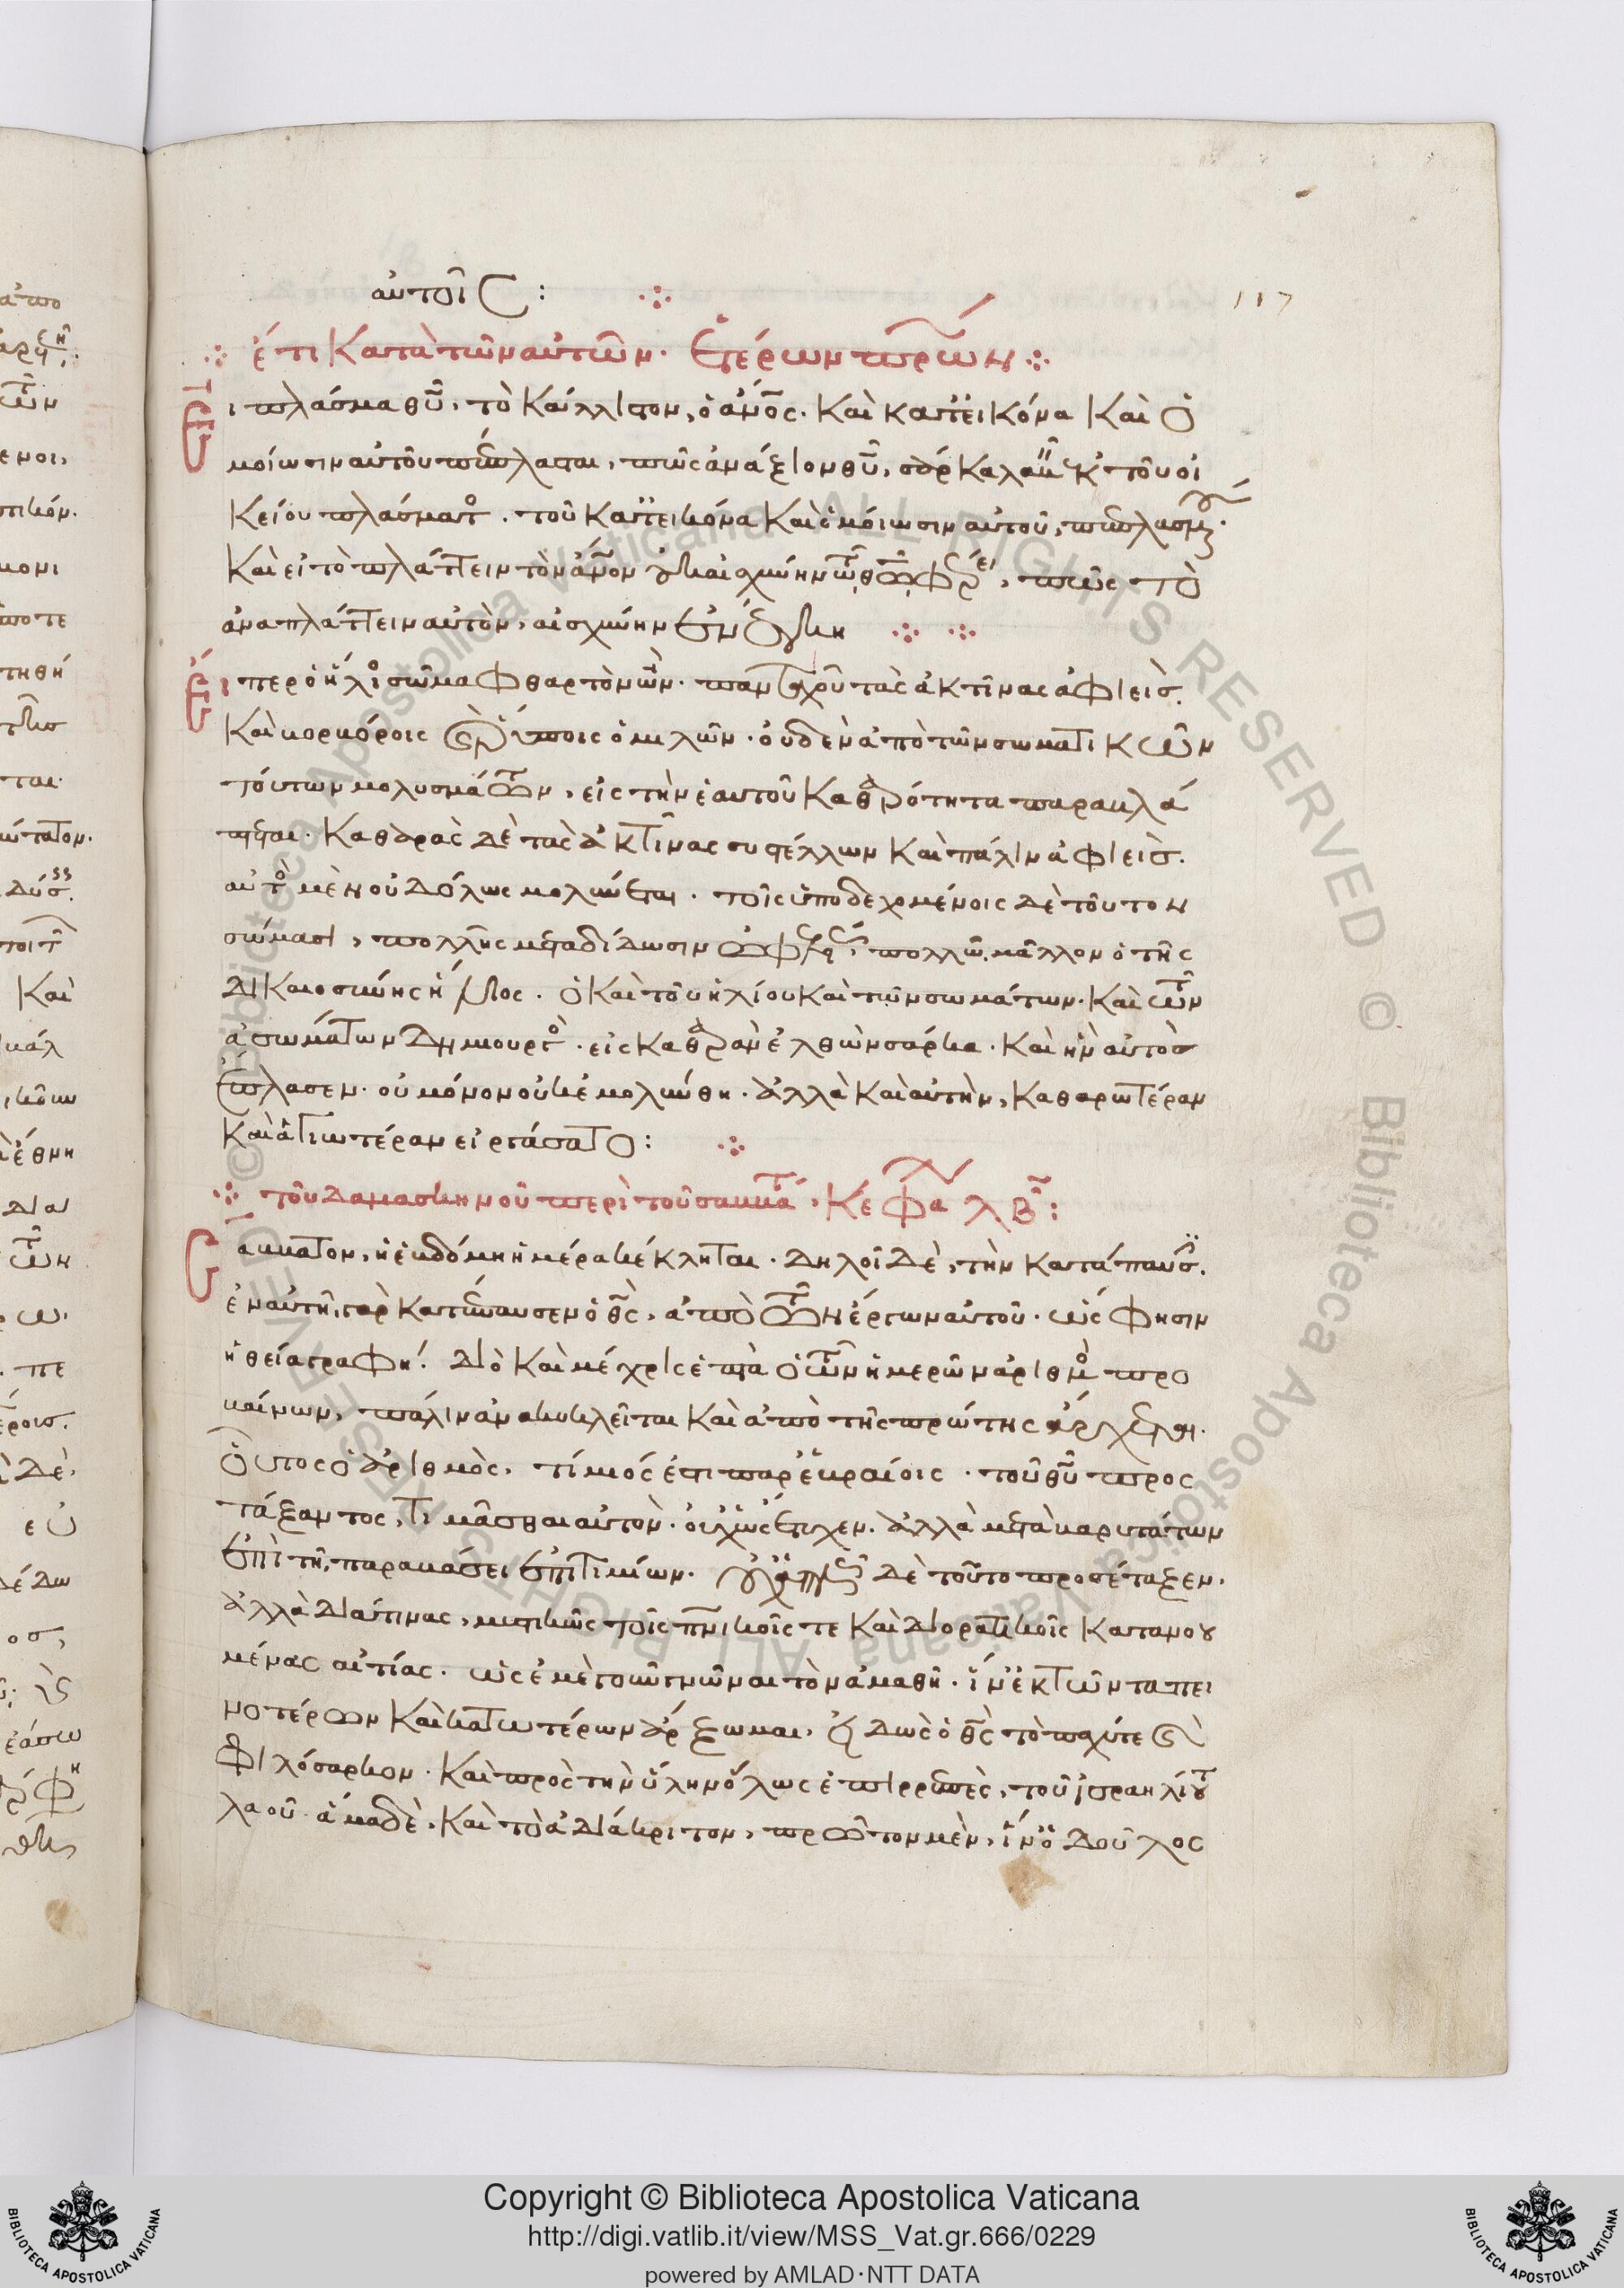 αὐτοῖς:
117
ἔτι κατὰ τῶν αὐτῶν. ἑτέρων πρων
Εἰ πλάσμα θῦ, τὸ κάλλιστον, ὁ ἄνος. καὶ κατ' εἰκόνα καὶ ὁ
μοίωσιν αὐτοῦ πέπλασται, πῶς ἀνάξιον θῦ, σὰρ κα τοῦ οἰ
κείου πλάσματος. τοῦ κατ' εἰκόνα καὶ ὁμοίωσιν αὐτοῦ,
καὶ εἰ τὸ πλάττειν τὸν ἄνον οὐκ αἰσχύνην τῷ θῷ, πῶς τὸ
ἀναπλάττειν αὐτὸν, αἰσχύνην
Εἴπερ ὁ ἥλιος σῶμα φθαρτὸν ὢν. πανταχοῦ τὰς ἀκτῖνας ἀφιεὶς.
καὶ βορβόροις ὁμιλῶν. οὐδὲν ἀπὸ τῶν σωματικῶν
τούτων μολυσμάτων, εἰς τὴν ἑαυτοῦ καθαρότητα παραβλά
πτεται. καθαρὰς δὲ τὰς ἀκτῖνας συστέλλων καὶ πάλιν ἀφιεὶς.
αὐτὸς μὲν οὐδόλως μολύνεται. τοῖς ὑποδεχομένοις δὲ τοῦτον
σώμασι, πολλῆς μεταδίδωσιν πολλῷ μᾶλλον ὁ τῆς
δικαιοσύνης ἥλιος. ὁ καὶ τοῦ ἡλίου καὶ τῶν σωμάτων. καὶ τῶν
ἀσωμάτων δημιουργὸς. εἰς καθαρὰν ἐλθὼν σάρκα. καὶ ἣν αὐτὸς
ἔπλασεν. οὐ μόνον οὐκ ἐμολύνθη. ἀλλὰ καὶ αὐτὴν, καθαρωτέραν
καὶ ἁγιωτέραν εἰργάσατο:
τοῦ δαμασκηνοῦ περὶ τοῦ σαββάτ, κεφα
Σάββατον, ἡ ἑβδόμη ἡμέρα κέκληται. δηλοῖ δὲ, τὴν κατάπαυσ.
ἐν αὐτῇ γὰρ κατέπαυσεν ὁ θς, ἀπὸ τῶν ἔργων αὐτοῦ. ὥς φησιν
ἡ θεία γραφή. διὸ καὶ μέχρις ἑπτὰ ὁ τῶν ἡμερῶν ἀριθμὸς προ
βαίνων, πάλιν ἀνακυκλεῖται καὶ ἀπὸ τῆς πρώτης ἄρχεται.
οὗτος ὁ ἀριθμὸς, τίμιός ἐστι παρ' ἑβραίοις. τοῦ θῦ προς
τάξαντος, τιμᾶσθαι αὐτὸν. οὐχ' ὡς ἔτυχεν. ἀλλὰ μετὰ βαρυτάτων
ἐπὶ τῇ παραβάσει ἐπιτιμίων. οὐχ' ἁπλῶς δὲ τοῦτο προσέταξεν.
ἀλλὰ διά τινας, μυστικῶς τοῖς πνικοῖς τε καὶ διορατικοῖς κατανοου
μένας αἰτίας. ὡς ἐμὲ γοῦν γνῶναι τὸν ἀμαθῆ. ἵν' ἐκ τῶν ταπει
νοτέρων καὶ κατωτέρων ἄρξωμαι, εἰδὼς ὁ θς τὸ παχύ τε καὶ
φιλόσαρκον. καὶ πρὸς τὴν ὕλην ὅλως ἐπιρρεπὲς, τοῦ ἰσραηλίτου
λαοῦ. ἅμα δὲ, καὶ τὸ ἀδιάκριτον, πρῶτον μὲν, ἵν' ὁ δοῦλος
Copyright © Biblioteca Apostolica Vaticana
http://digi.vatlib.it/view/MSS_Vat.gr.666/0229
powered by AMLAD·NTT DATA